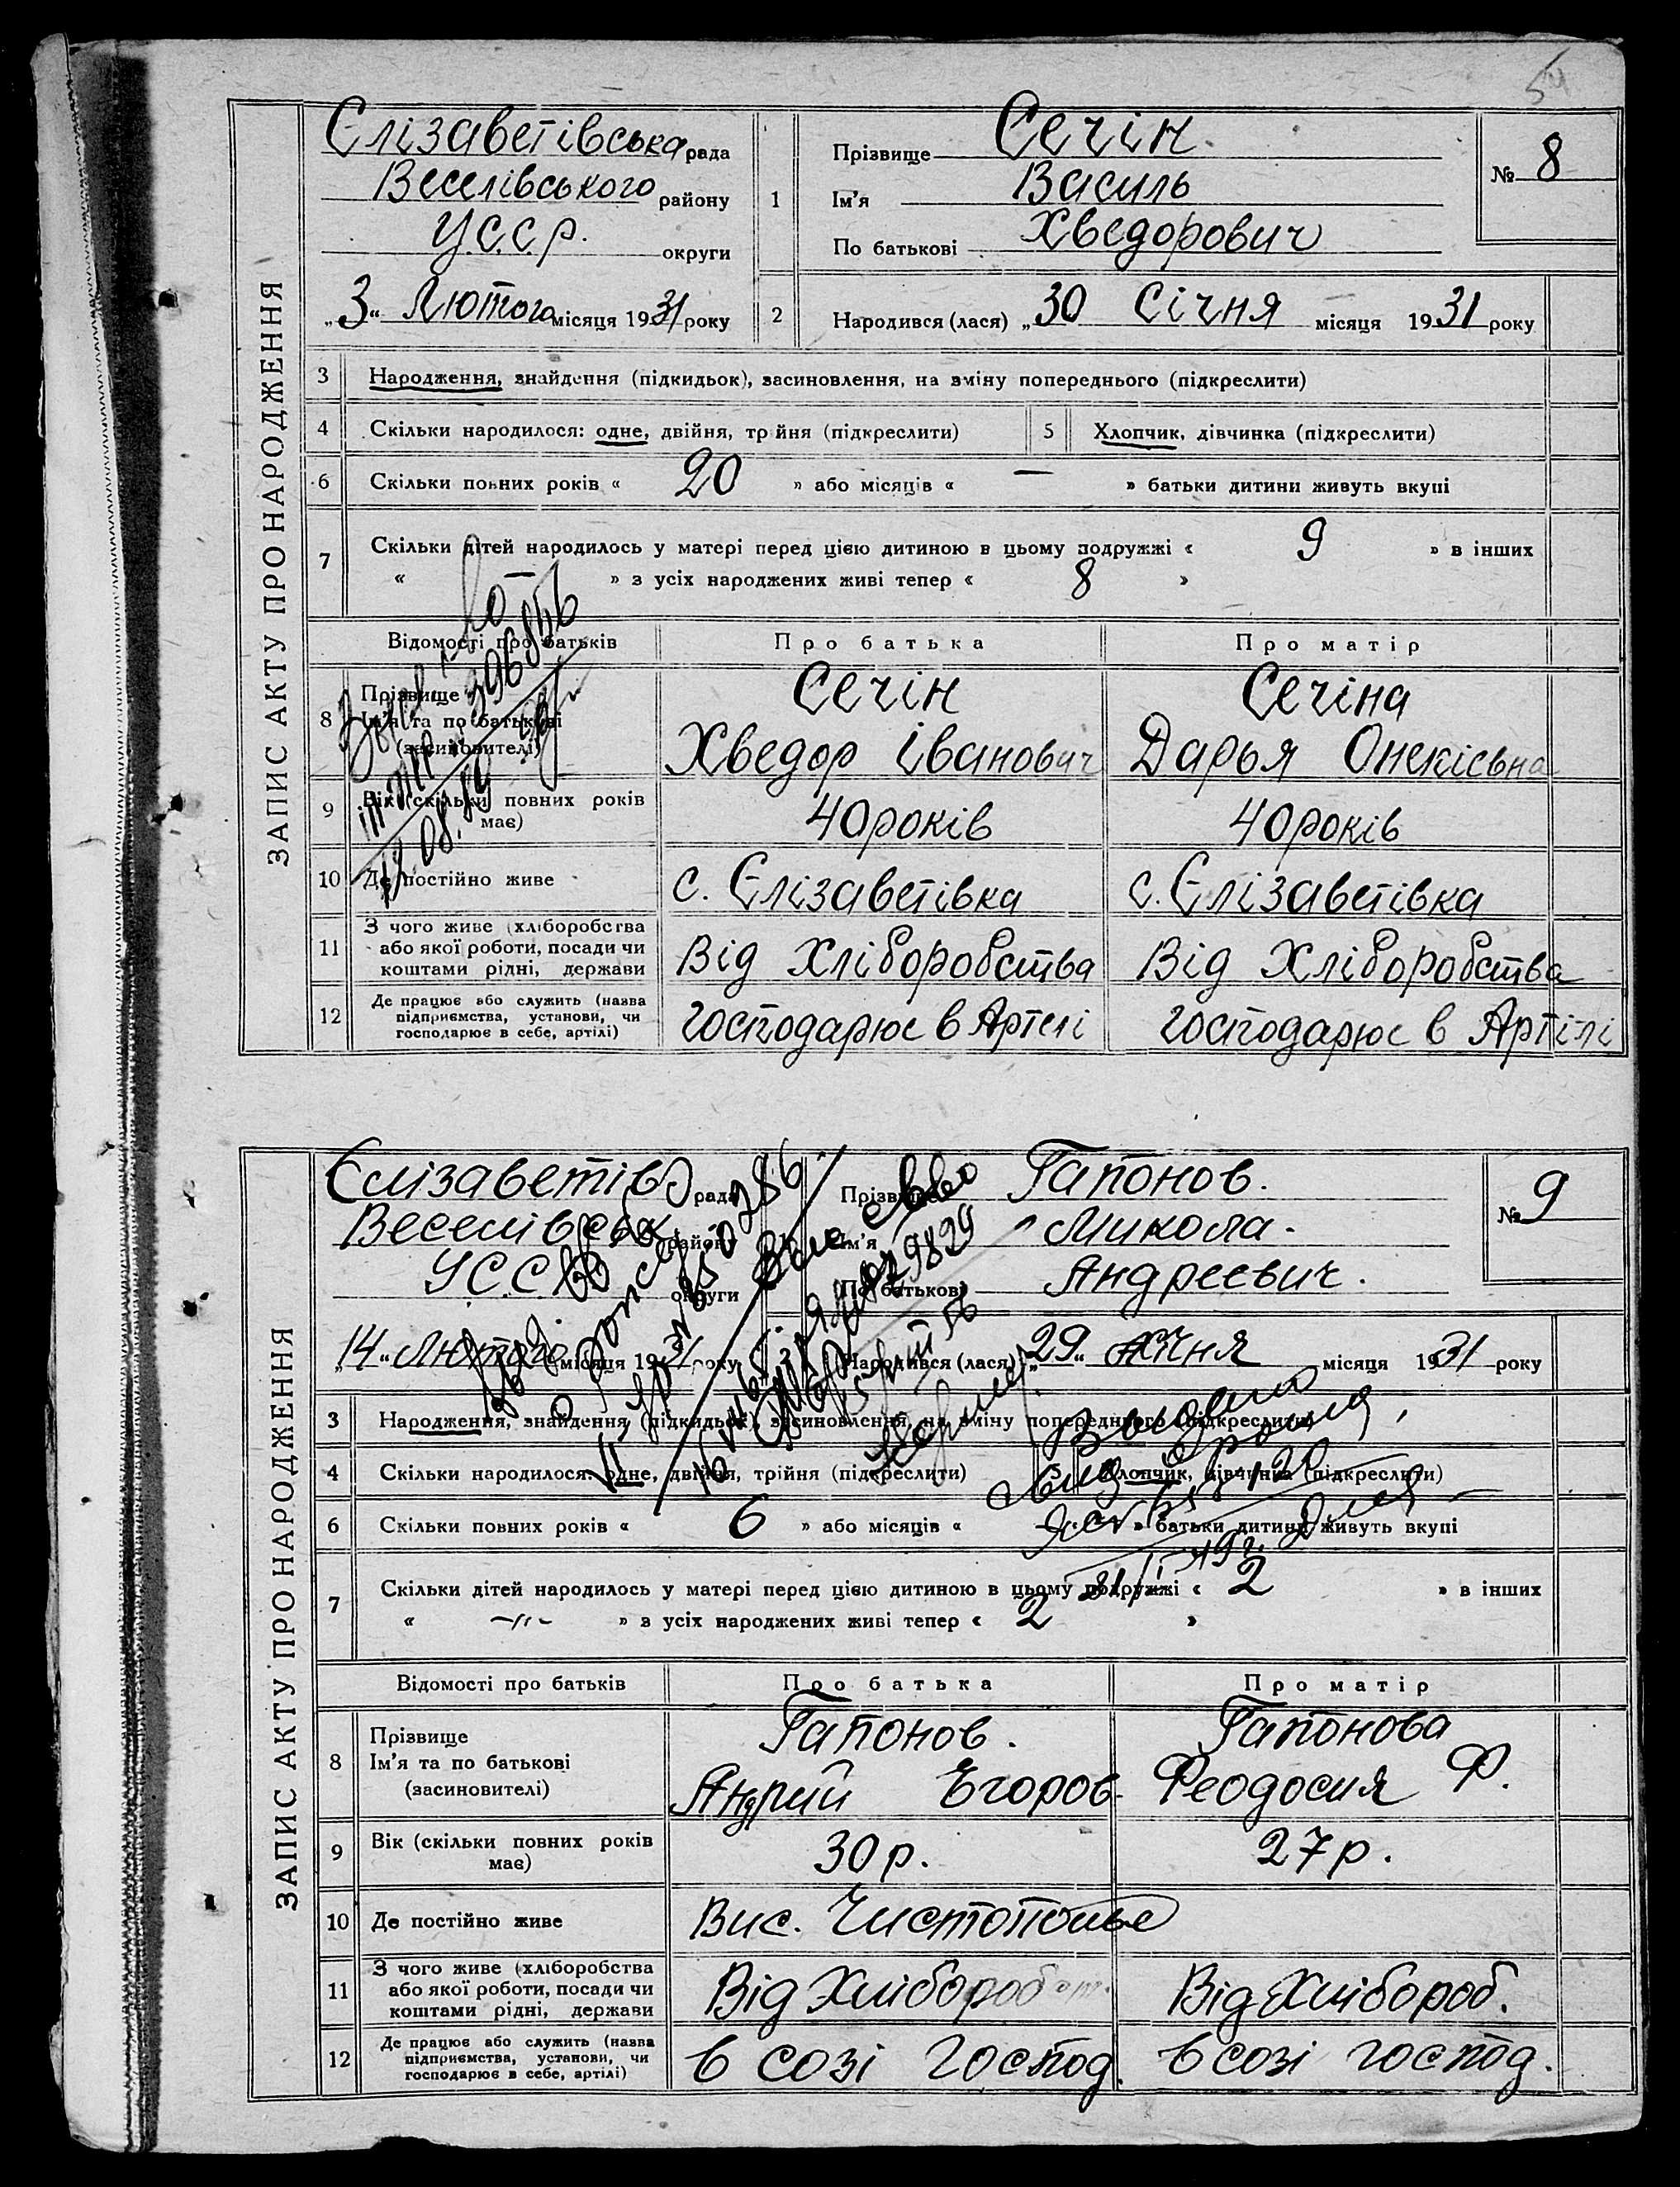 54
ЗАПИС АКТУ ПРО НАРОДЖЕННЯ
Єлізаветівська рада
Веселівського району
У.С.С.Р. округи
„3“ Лютого місяця 1931 року
1
Прізвище Сечін.
Ім'я Василь
По батькові Хведорович
№ 8
2 Народився (лася) „30 Січня місяця 1931 року
3 Народження, знайдення (підкидьок), засиновлення, на зміну попереднього (підкреслити)
4 Скільки народилося: одне, двійня, трійня (підкреслити)
5 Хлопчик, дівчинка (підкреслити)
6 Скільки повних років « 20 » або місяців « — » батьки дитини живуть вкупі
7 Скільки дітей народилось у матері перед цією дитиною в цьому подружжі « 9 » в інших
« — » з усіх народжених живі тепер « 8 »
Відомості про батьків Про батька Про матір
8 Прізвище
Ім'я та по батькові
(засиновителі)
Сечін
Хведор Іванович
Сечіна
Дарья Онекісьвна
396856
08.
9 Вік (скільки повних років має) 40 років 40 років
10 Де постійно живе с. Єлізаветівка с. Єлізаветівка
11 З чого живе (хліборобства
або якої роботи, посади чи
коштами рідні, держави
Від Хліборобства Від Хліборобства
12 Де працює або служить (назва
підприємства, установи, чи
господарює в себе, артілі)
Господарює в Артелі Господарює в Артілі
ЗАПИС АКТУ ПРО НАРОДЖЕННЯ
Єлізаветів рада
Веселівськ району
У.С.С округи
„14“ Лютого місяця 1931 року
Прізвище Гапонов.
Ім'я Микола.
По батькові Андреевич.
№ 9
Народився (лася) „29“ січня місяця 1931 року
3 Народження, знайдення (підкидьок), засиновлення, на зміну попереднього (підкреслити)
4 Скільки народилося: одне, двійня, трійня (підкреслити)
Хлопчик, дівчинка (підкреслити)
6 Скільки повних років « 6 » або місяців « » батьки дитини живуть вкупі
7 Скільки дітей народилось у матері перед цією дитиною в цьому подружжі « 2 » в інших
« —״— » з усіх народжених живі тепер « 2 »
Відомості про батьків Про батька Про матір
8 Прізвище
Ім'я та по батькові
(засиновителі)
Гапонов.
Андрий Егоров.
Гапонова
Феодосия Ф.
9 Вік (скільки повних років має) 30 р. 27 р.
10 Де постійно живе Вис. Чистополье
11 З чого живе (хліборобства
або якої роботи, посади чи
коштами рідні, держави
Від Хліборобст. Від Хлібороб.
12 Де працює або служить (назва
підприємства, установи, чи
господарює в себе, артілі)
в созі Господ. в созі господ.